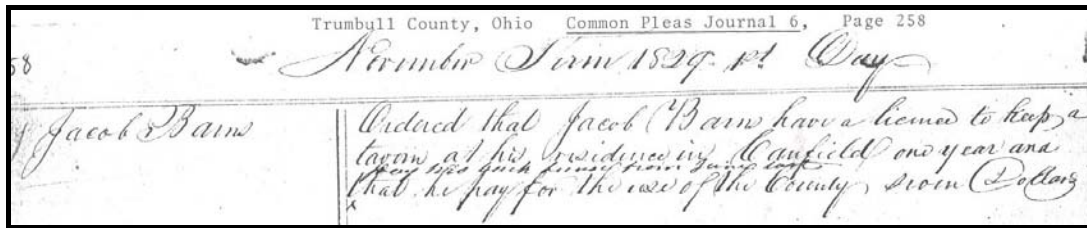 Trumbull County, Ohio Common Pleas Journal 6, Page 258
58
November Term 1829 1st Day
Jacob Barns
Ordered that Jacob Barns have a license to keep a
tavern at his residence in Canfield one year and
from
that he pay for the use of the County seven Dollars